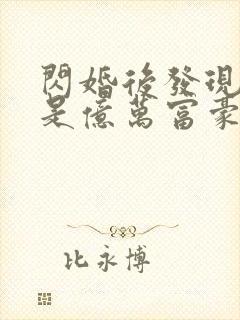 閃婚後發現
是億萬富豪
比永博